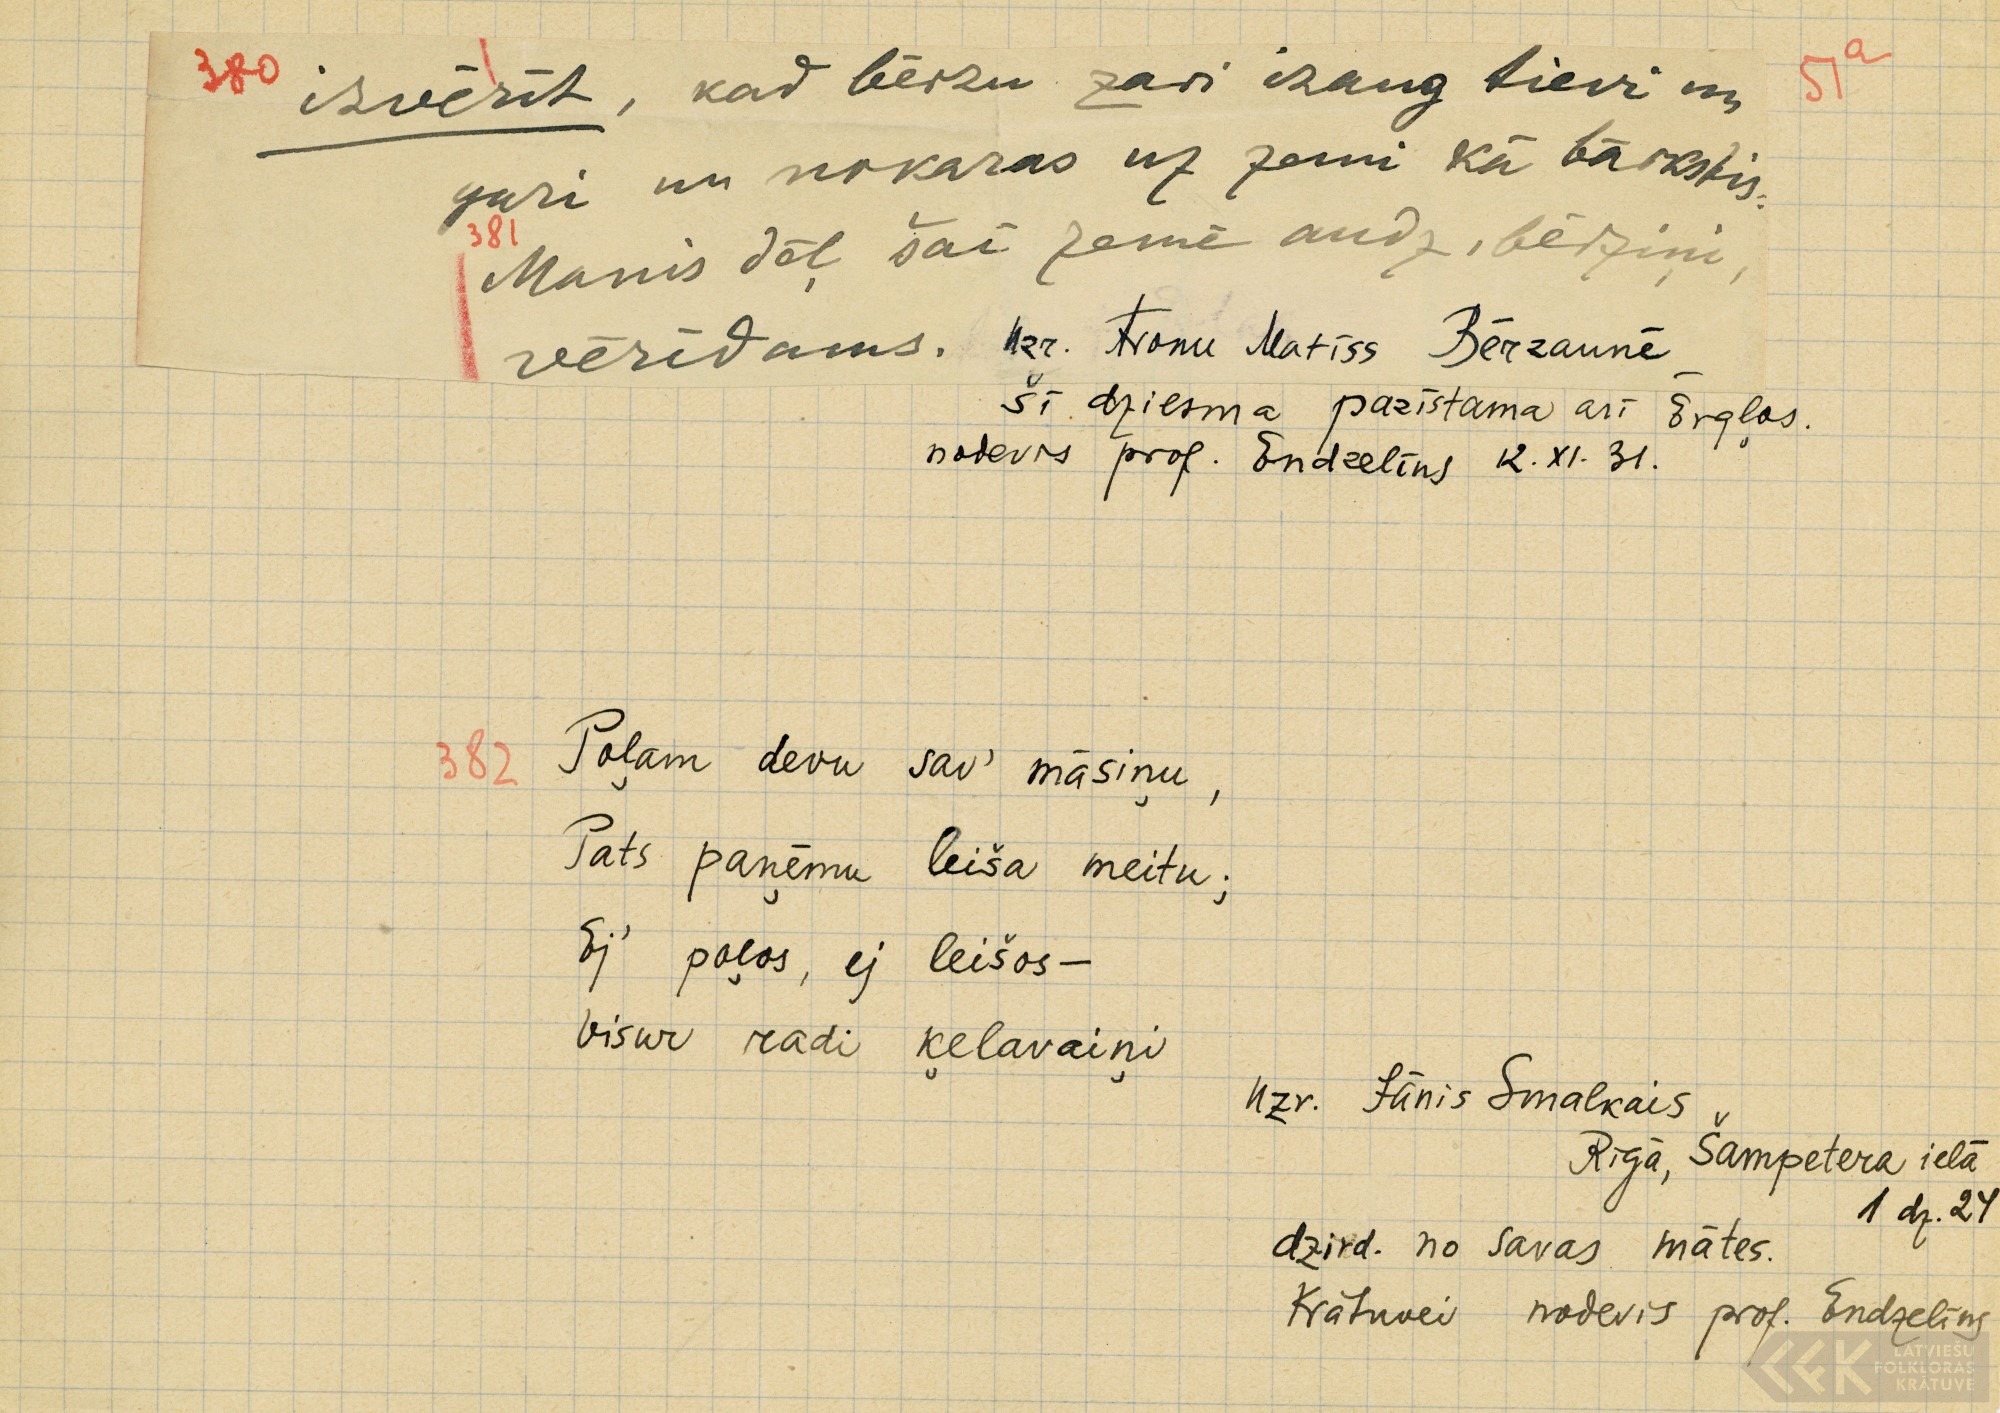 380 izvērīt, kad bērzu zari izaug tievi un 51a
gari un nokaras uz zemi kā bārkstis:
381
Manis dēļ šaī zemē audz, bērziņi,
vērīdams. Uzr. Aronu Matīss Bērzaunē
Šī dziesma pazīstama arī Ērgļos.
nodevis prof. Endzelīns 12. XI. 31.
382 Poļam devu sav' māsiņu,
Pats paņēmu leiša meitu;
Ej' poļos, ej leišos—
Visur radi ķelavaiņi
Uzr. Jānis Smalkais
Rīgā, Šampetera ielā
1 dz. 24
dzird. no savas mātes.
Krātuvei nodevis prof. Endzelīns
LATVIEŠU
FOLKLORAS
KRĀTUVE